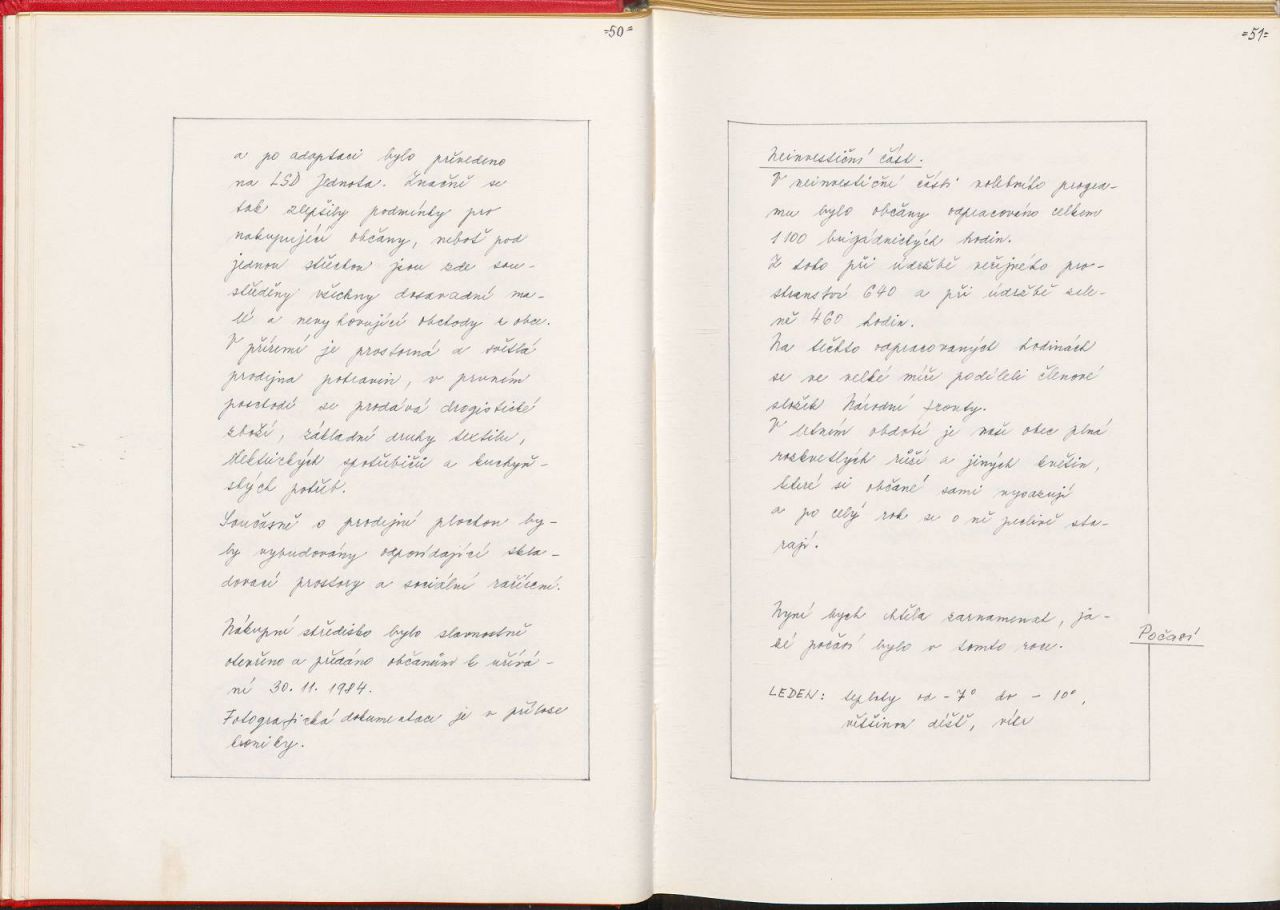 =50=
a po adaptaci bylo převedeno
na LSD Jednota. Značně se
tak zlepšily podmínky pro
nakupující občany, neboť pod
jednou střechou jsou zde sou-
středěny všechny dosavadní ma-
lé a nevyhovující obchody v obci.
V přízemí je prostorná a světlá
prodejna potravin, v prvním
poschodí se prodává drogistické
zboží, základní druhy textilu,
elektrických spotřebičů a kuchyň-
ských potřeb.
Současně s prodejní plochou by-
ly vybudovány odpovídající skla-
dovací prostory a sociální zařízení.
Nákupní středisko bylo slavnostně
otevřeno a předáno občanům k užívá-
ní 30. 11. 1984.
Fotografická dokumentace je v příloze
kroniky.
=51=
Neinvestiční část.
V neinvestiční části volebního progra-
mu bylo občany odpracováno celkem
1 100 brigádnických hodin.
Z toho při údržbě veřejného pro-
stranství 640 a při údržbě zele-
ně 460 hodin.
Na těchto odpracovaných hodinách
se ve velké míře podíleli členové
složek Národní fronty.
V letním období je naše obec plná
rozkvetlých růží a jiných květin,
které si občané sami vysazují
a po celý rok se o ně pečlivě sta-
rají.
Nyní bych chtěla zaznamenat, ja-
ké počasí bylo v tomto roce.
Počasí
LEDEN: teploty od -7° do -10°,
většinou déšť, vítr